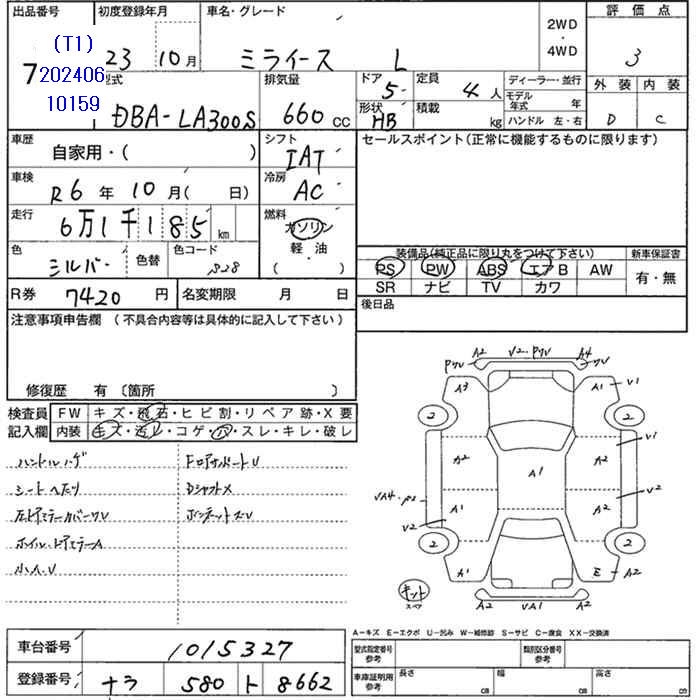 出品番号 初度登録年月 車名・グレード 2WD・4WD 評価点
(T1) 7 202406 10159
23 年 10 月 ミライース L 3
型式 DBA-LA300S 排気量 660 cc
ドア 5 定員 4 人 ディーラー・並行
形状 HB 積載 kg モデル年式 年 ハンドル 左・右
外装 D 内装 C
車歴 自家用・( ) シフト IAT
車検 R6 年 10 月( 日) 冷房 AC
走行 6万1千185 km 燃料 ガソリン 軽油 ( ・ )
色 シルバー 色替 色コード S28
R券 7420 円 名変期限 月 日
セールスポイント(正常に機能するものに限ります)
装備品(純正品に限り丸をつけて下さい) 新車保証書
PS PW ABS エアB AW 有・無
SR ナビ TV カワ
後日品
注意事項申告欄 (不具合内容等は具体的に記入して下さい)
修復歴 有〔箇所 〕
検査員記入欄 FW キズ・飛石・ヒビ割・リペア跡・X要
内装 キズ・汚レ・コゲ・穴・スレ・キレ・破レ
ハンドルハゲ FロアサポートU
シートヘタリ DシャフトX
左ドアミラーカバーWU ボンネットズU
ホイル・ドアミラーA
小A.U
A2 V2・PWU A4
PWU WU
A3 A1 V1
2 2
A2 A2 V1
A1
VA4・P2 A2 A2 V2
V2
2 2
A1 E A2
キット スペア
A2 VA1 A2
A−キズ E−エクボ U−凹み W−補修跡 S−サビ C−腐食 XX−交換済
車台番号 1015327
登録番号 ナラ 580 ト 8662
型式指定番号 参考 類別区分番号 参考
車庫証明用 参考 長さ cm 幅 cm 高さ cm